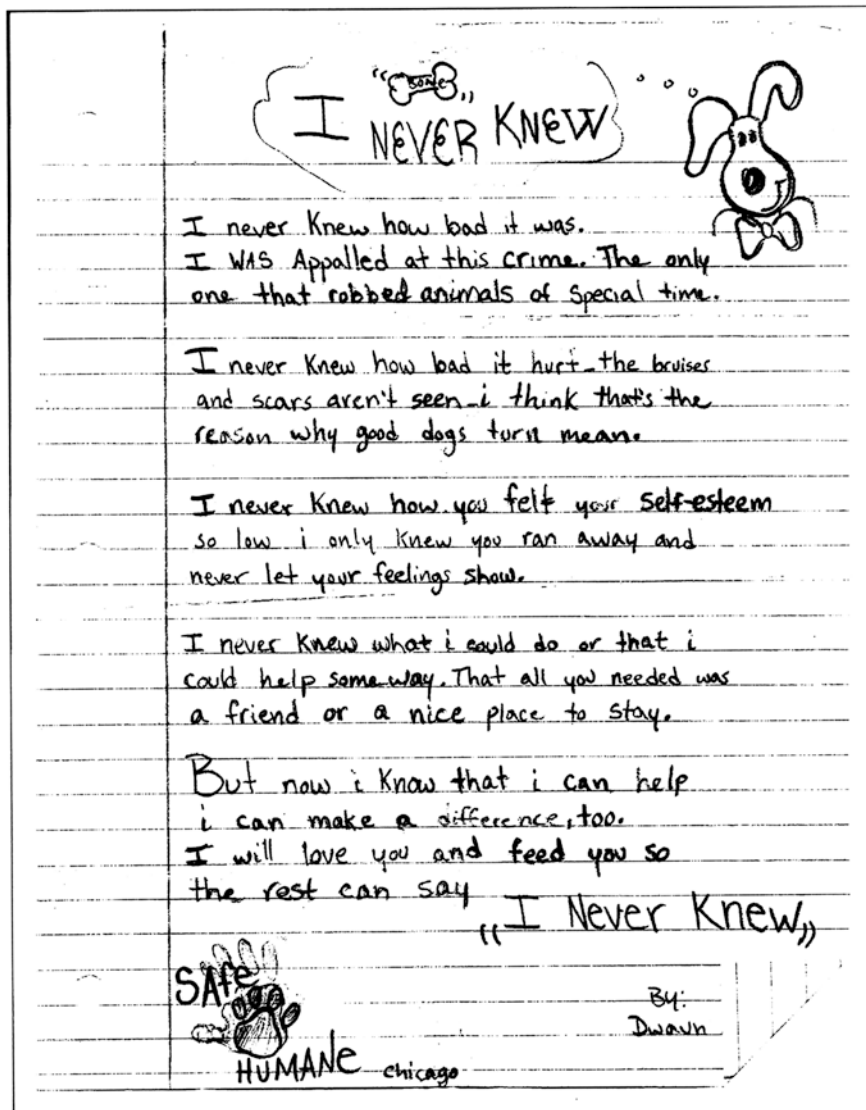 "BONE"
I NEVER KNEW
I never Knew how bad it was.
I WAS Appalled at this crime. The only
one that robbed animals of special time.
I never Knew how bad it hurt-the bruises
and scars aren't seen-i think that's the
reason why good dogs turn mean.
I never Knew how you felt your self-esteem
so low i only knew you ran away and
never let your feelings show.
I never Knew what i could do or that i
could help some way. That all you needed was
a friend or a nice place to stay.
But now i Know that i can help
i can make a difference, too.
I will love you and feed you so
the rest can say
"I Never Knew"
SAfe
HUMANE chicago
By:
Dwaun